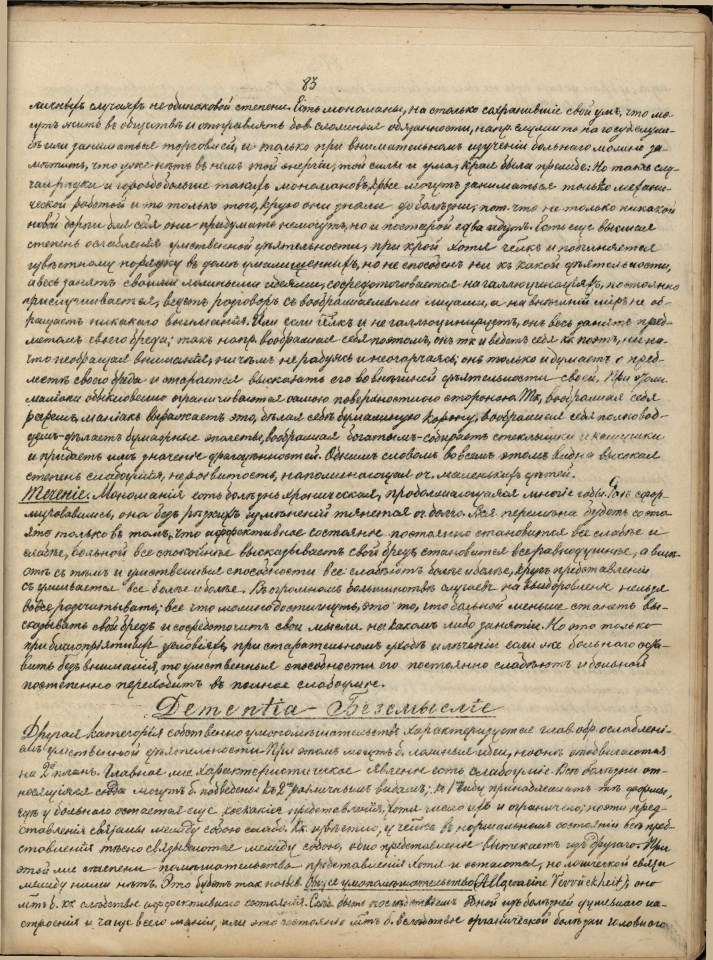 83
личныхъ случаяхъ не одинаковой степени. Есть мономаны, на столько сохранившіе свой умъ, что мо-
гутъ жить въ обществѣ и отправлять бол. сложныя обязанности, напр. служить по на госуд. служ-
бѣ или заниматься торговлей, и только при внимательномъ изученіи больнаго можно за-
мѣтить, что уже нѣтъ въ немъ той энергіи, той силы и ума, края была прежде. Но такіе слу-
чаи рѣдки и гораздо больше такихъ мономановъ, крые могутъ заниматься только механи-
ческой работой и то только того, крую они знали до болѣзни, пот. что не только никакой
новой дороги для себя они придумать не могутъ, но и по старой едва идутъ. Есть еще высшая
степень ослабленія умственной дѣятельности, при крой хотя чѣлкъ и подчиняется
извѣстному порядку въ домѣ умалишенныхъ, но не способенъ ни къ какой дѣятельности,
а весь занятъ своими ложными идеями, сосредоточивается на галлюцинаціяхъ, постоянно
прислушивается, ведетъ разговоръ съ воображаемыми лицами, а на внѣшній міръ не об-
ращаетъ никакаго вниманія. Или если чѣлкъ и не галлюцинируетъ, онъ весь занятъ пред-
метомъ своего бреда; такъ напр. воображая себя поэтомъ, онъ тк и ведетъ себя кк поэтъ, ни на
что не обращая вниманія, ничѣмъ не радуясь и не огорчаясь; онъ только и думаетъ о пред-
метѣ своего бреда и старается высказать его во внѣшней дѣятельности своей. При этомъ
маніаки обыкновенно ограничиваются самою поверхностною стороною. Тк, воображая себя
царемъ, маніакъ выражаетъ это, дѣлая себѣ бумажную корону, воображая себя полковод-
цемъ - дѣлаетъ бумажные эполеты, воображая богатымъ - собираетъ стеклышки и камушки
и придаетъ имъ значеніе драгоцѣнностей. Однимъ словомъ во всемъ этомъ видна высокая
степень слабоумія, неразвитость, напоминающая оч. маленькихъ дѣтей.
Теченіе. Мономанія есть болѣзнь хроническая, продолжающаяся многіе годы. Разъ сфор-
мировавшись, она безъ рѣзкихъ измѣненій тянется оч. долго. Вся перемѣна будетъ состо-
ять только въ томъ, что аффективное состояніе постоянно становится все слабѣе и
слабѣе, больной все спокойнѣе высказываетъ свой бредъ, становится все равнодушнѣе, а вмѣс-
тѣ съ тѣмъ и умственныя способности все слабѣютъ болѣе и болѣе, кругъ представленій
съуживается все болѣе и болѣе. Въ огромномъ большинствѣ случаевъ на выздоровленіе нельзя
вовсе разсчитывать; все что можно достигнуть, это то, что больной меньше станетъ вы-
сказывать свой бредъ и сосредоточитъ свои мысли на какомъ либо занятіи. Но это только
при благопріятныхъ условіяхъ, при старательномъ уходѣ и лѣченіи; если же больнаго оста-
вить безъ вниманія, то умственныя способности его постоянно слабѣютъ и больной
постепенно переходитъ въ полное слабоуміе.
Dementia - Безсмысліе
Другая категорія собственно умопомѣшательства характеризуется глав. обр. ослаблені-
емъ умственной дѣятельности. При этомъ могутъ б. ложныя идеи, но онѣ отодвигаются
на 2й планъ. Главное же характеристическое явленіе есть слабоуміе. Всѣ болѣзни от-
носящіяся сюда могутъ б. подведены къ 2мъ различнымъ видамъ; къ 1 виду принадлежатъ тѣ формы,
гдѣ у больнаго остается еще кое какія представленія, хотя число ихъ и ограничено; но эти пред-
ставленія связаны между собою слабо. Кк извѣстно, у чѣлка въ нормальномъ состояніи всѣ пред-
ставленія тѣсно связываются между собою, одно представленіе вытекаетъ изъ другаго. При
этой же степени помѣшательства представленія хотя и остаются, но логической связи
между ними нѣтъ. Это будетъ такъ назыв. общее умопомѣшательство (Allgemeine Verrücktheit); оно
мтъ б. кк слѣдствіе аффективнаго состоянія. Оно было послѣдствіемъ одной изъ болѣзней душевнаго на-
строенія и чаще всего маніи, или это состояніе мтъ б. вслѣдствіе органической болѣзни головнаго